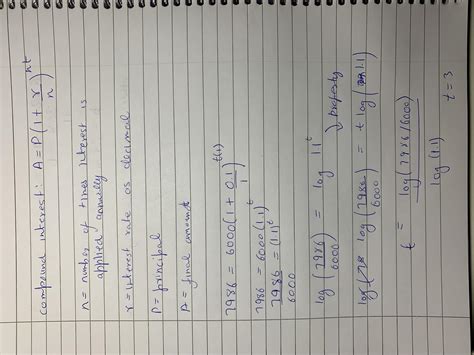 compound interest: A = P(1 + r/n)^nt
n = number of times interest is
applied annually
r = interest rate as decimal
P = principal
A = final amount
7986 = 6000(1 + 0.1/1)^t(1)
7986 = 6000(1.1)^t
7986/6000 = (1.1)^t
log(7986/6000) = log 1.1^t
↓ property
log(7986/6000) = t log(1.1)
t = log(7986/6000)/log(1.1)
t = 3